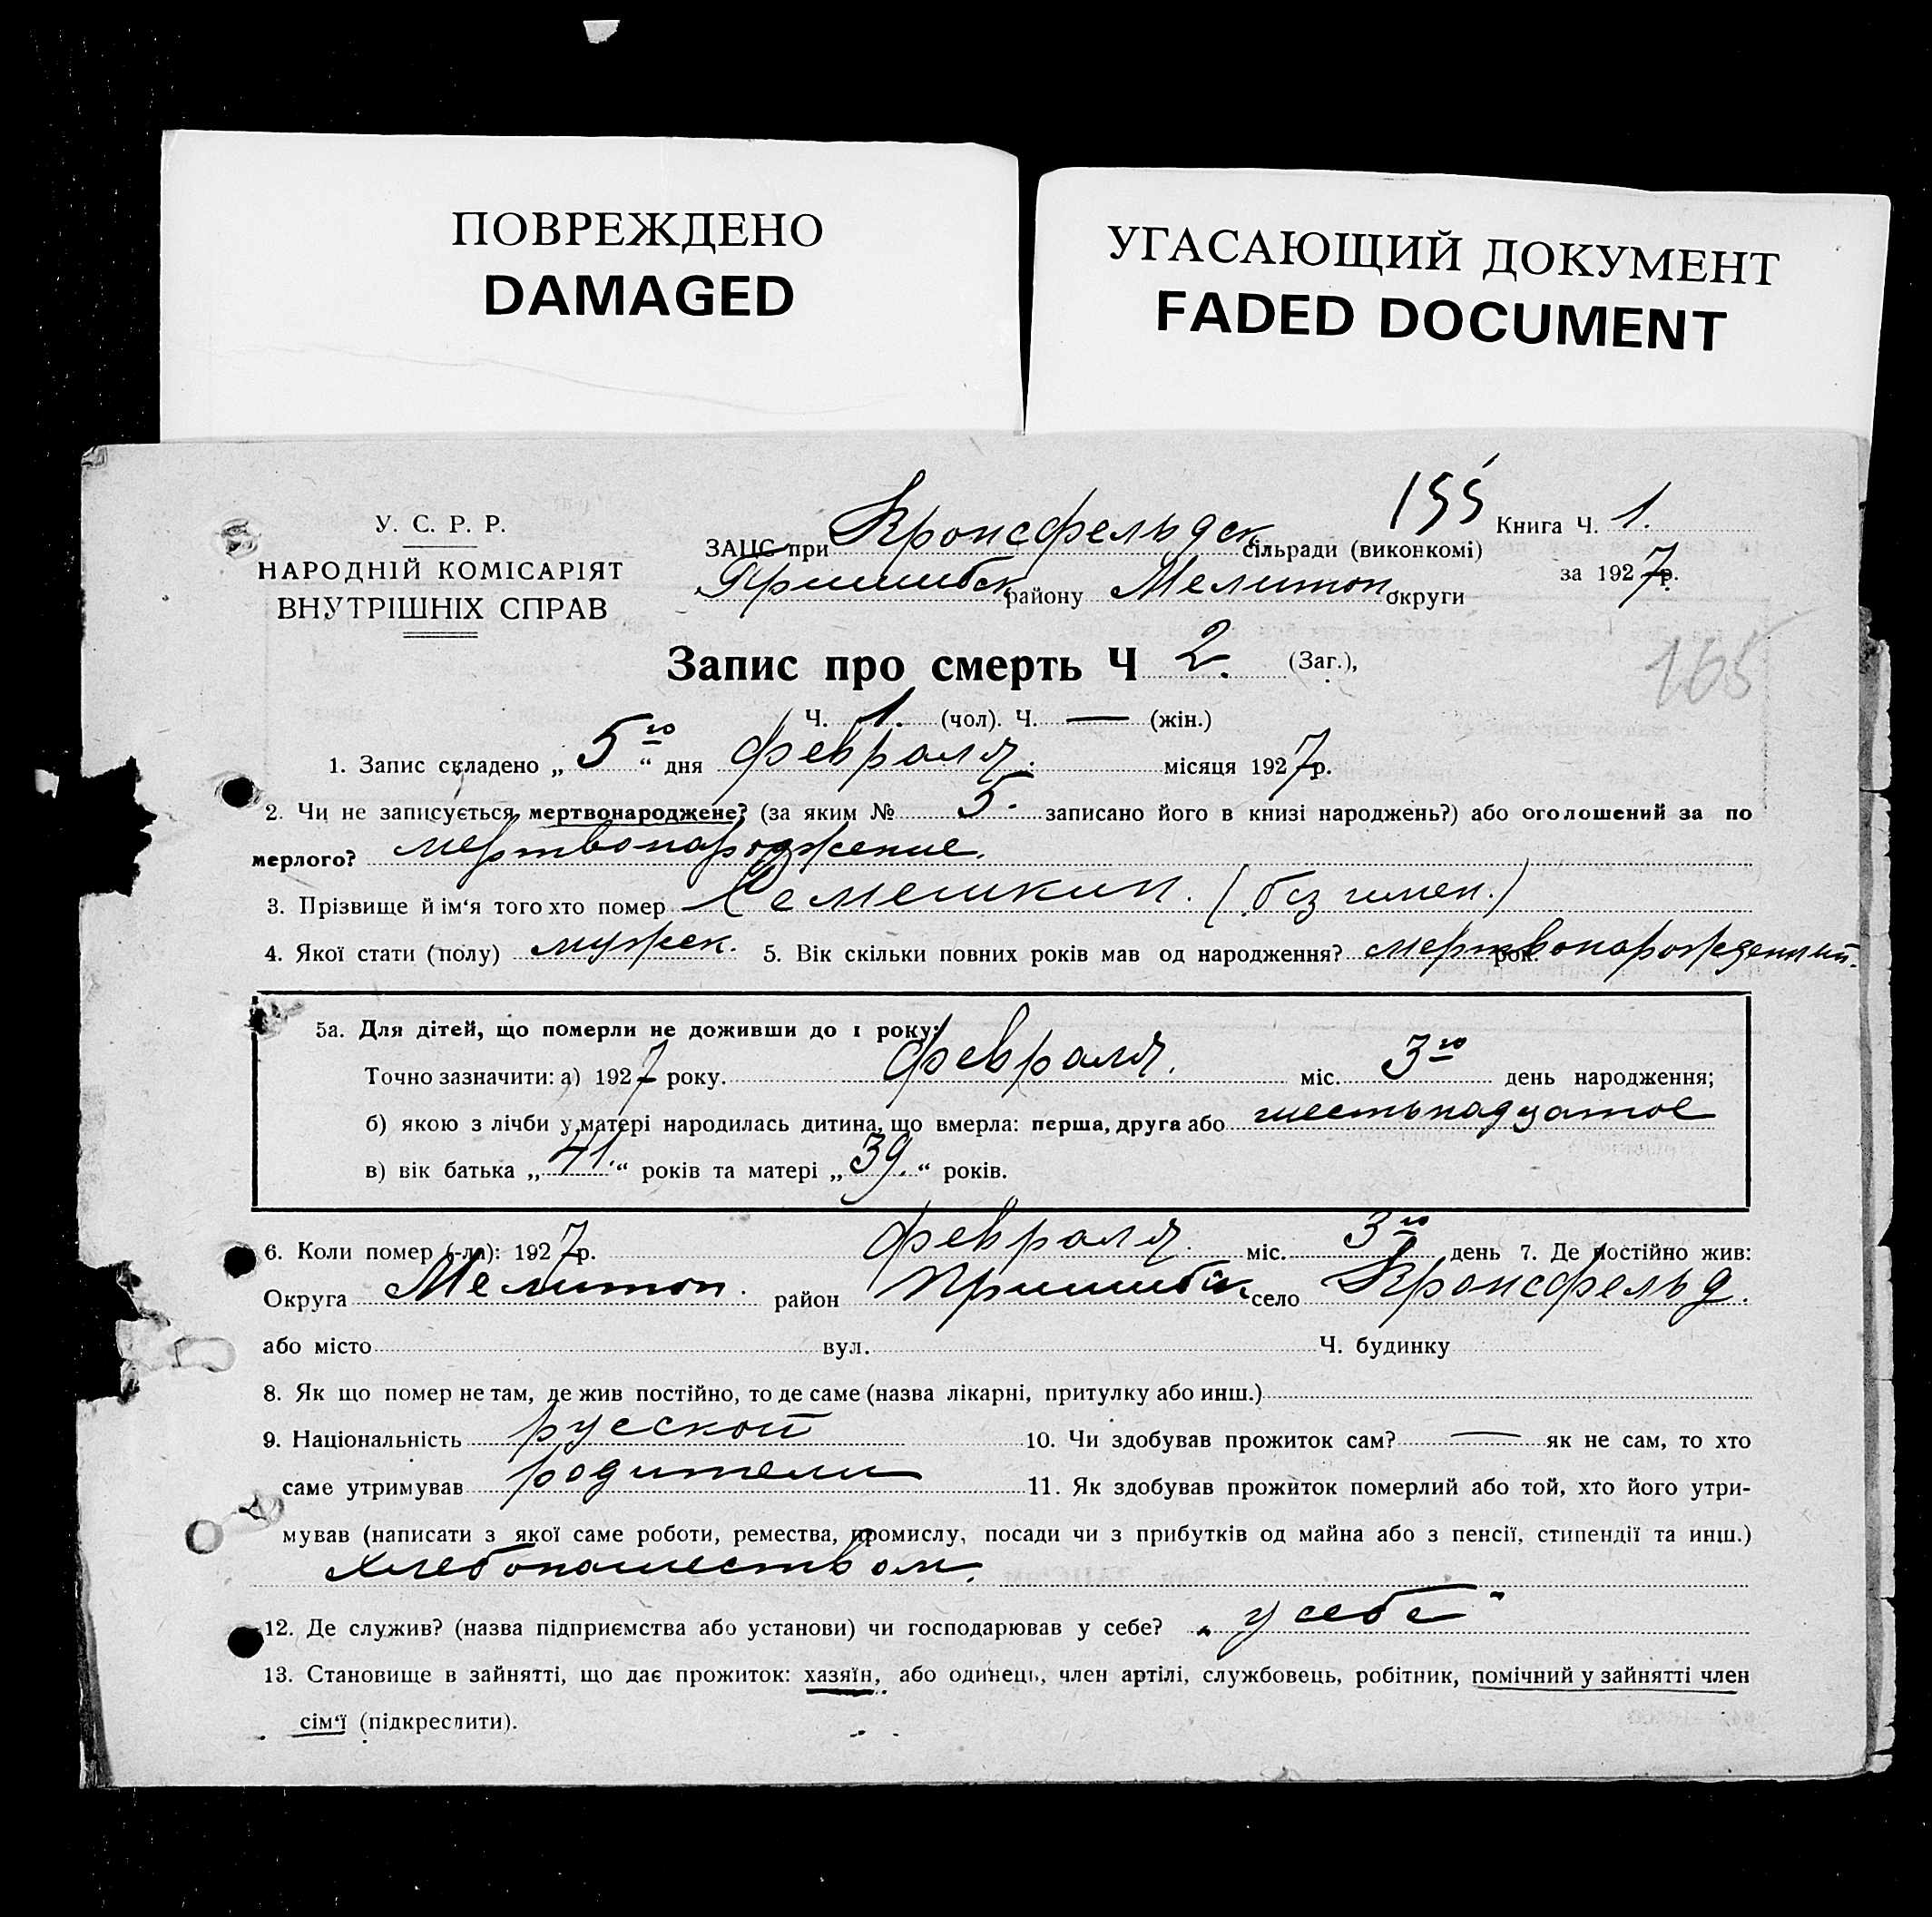 ПОВРЕЖДЕНО
DAMAGED
УГАСАЮЩИЙ ДОКУМЕНТ
FADED DOCUMENT
155
У. С. Р. Р.
НАРОДНІЙ КОМІСАРІЯТ
ВНУТРІШНІХ СПРАВ
Книга Ч. 1.
за 1927р.
ЗАЦС при Кронсфельдск сільради (виконкомі)
Пришибск району Мелитоп округи
165
Запис про смерть Ч 2. (Заг.),
Ч. 1. (чол). Ч. — (жін.)
1. Запис складено „ 5го “ дня февраля. місяця 1927р.
2. Чи не записується мертвонароджене? (за яким № 5. записано його в книзі народжень?) або оголошений за по
мерлого? мертвонарождение.
3. Прізвище й ім‘я того хто помер Семешкин. (без имен.)
4. Якої стати (полу) мужск. 5. Вік скільки повних років мав од народження? мертвонарожденный. рок.
5а. Для дітей, що померли не доживши до 1 року:
Точно зазначити: а) 1927 року. февраля. міс. 3го день народження;
б) якою з лічби у матері народилась дитина, що вмерла: перша, друга або шестьнадцатое
в) вік батька „ 41. “ років та матері „ 39. “ років.
6. Коли помер (-ла): 1927р. февраля. міс. 3го день 7. Де постійно жив:
Округа Мелитоп. район Пришибск село Кронсфельд.
або місто вул. Ч. будинку
8. Як що помер не там, де жив постійно, то де саме (назва лікарні, притулку або инш.)
9. Національність русской 10. Чи здобував прожиток сам? — як не сам, то хто
саме утримував родители 11. Як здобував прожиток померлий або той, хто його утри-
мував (написати з якої саме роботи, ремества, промислу, посади чи з прибутків од майна або з пенсії, стипендії та инш.)
хлебопашеством.
12. Де служив? (назва підприємства або установи) чи господарював у себе? „у себе“
13. Становище в зайнятті, що дає прожиток: хазяїн, або одинець, член артілі, службовець, робітник, помічний у зайнятті член
сім‘ї (підкреслити).